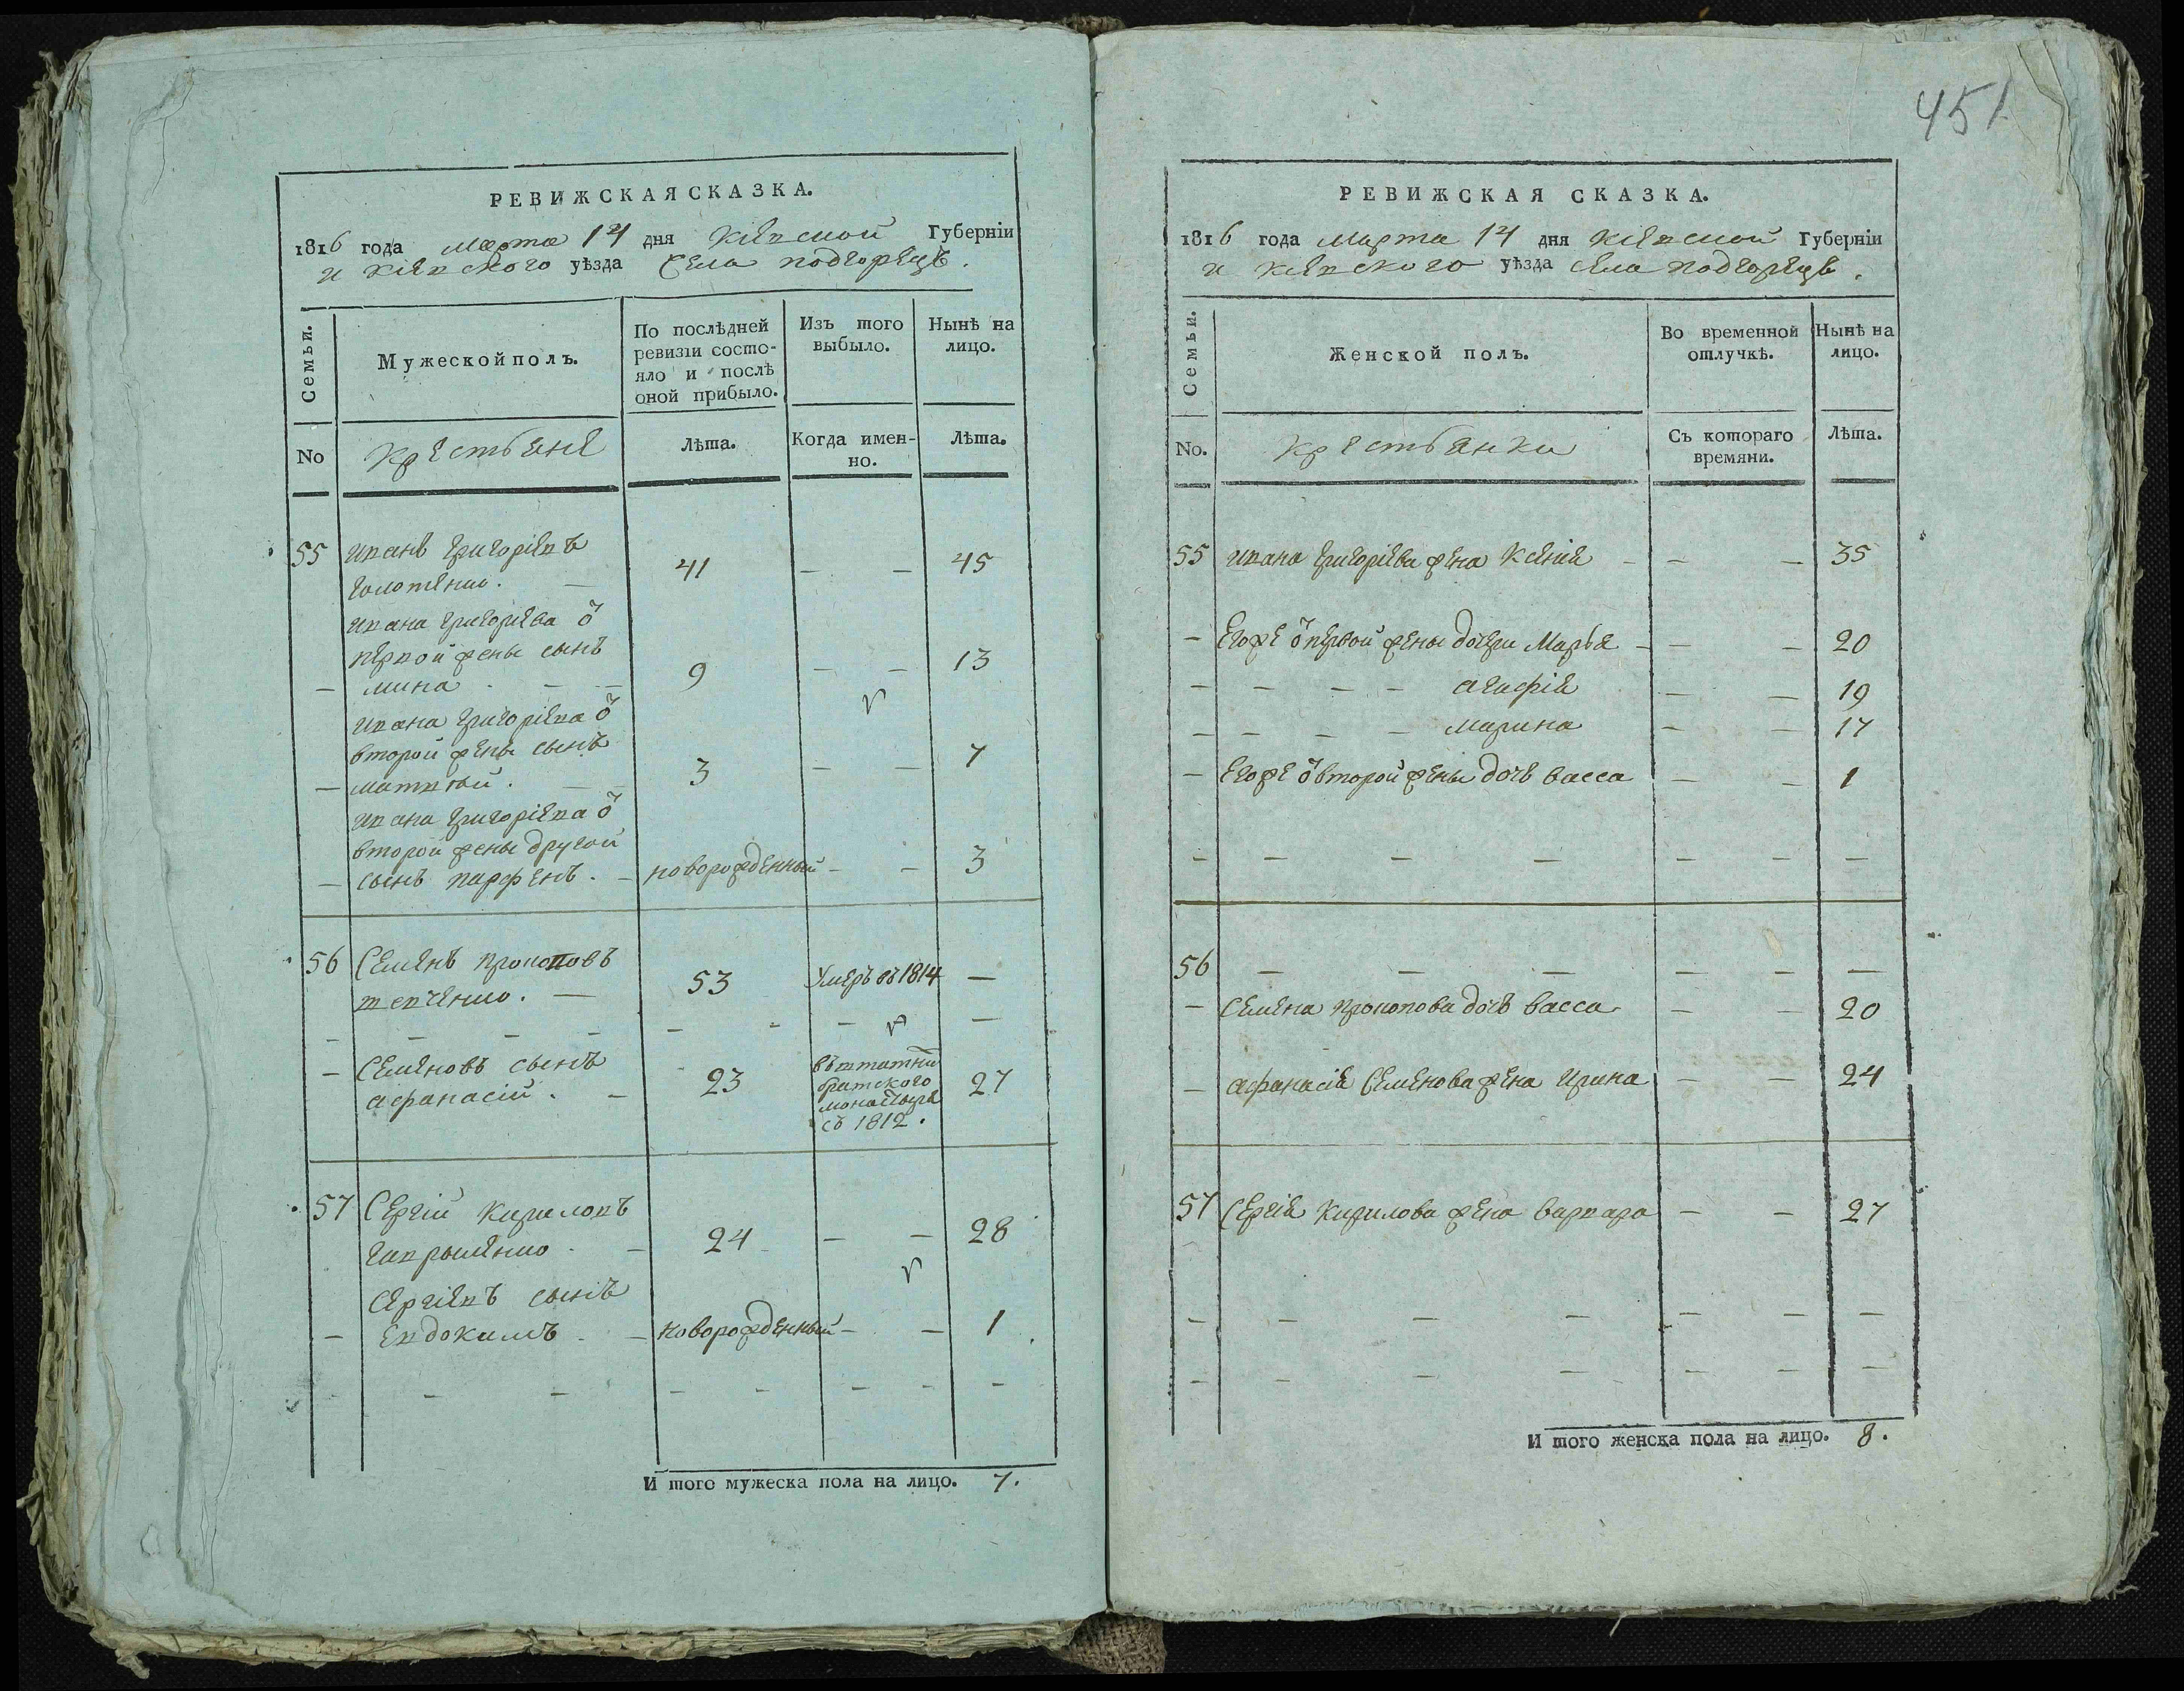 451
РЕВИЖСКАЯ СКАЗКА.
1816 года марта 14 дня Кіевской Губерніи
и Кіевского уѣзда села подгорецъ.
Семьи.
Мужеской полъ.
По послѣдней
ревизіи состо-
яло и послѣ
оной прибыло.
Изъ того
выбыло.
Нынѣ на
лицо.
No
крестьяне
Лѣта.
Когда имен-
но.
Лѣта.
55 иванъ григоріевъ
голотенко. — 41 — — 45
ивана григориева ѿ
первой жены сынъ
— мина . — — 9 — — 13
ивана григоріева ѿ
второй жены сынъ
— матвій . — — 3 — — 7
ивана григоріева ѿ
второй жены другой
— сынъ парфенъ . — новорожденный — — 3
56 Семенъ прокоповъ
53 Умеръ въ 1814 —
— — — — — — — —
— Семеновъ сынъ
афанасій . — 23 27
братского
монастыря
съ 1812 .
57 Сергій Кириловъ
24 — — 28
Сергіевъ сынъ
— Евдокимъ . — новорожденный — — 1
— — — — — — — —
И того мужеска пола на лицо. 7.
РЕВИЖСКАЯ СКАЗКА.
1816 года марта 14 дня Кіевской Губерніи
и Кіевского уѣзда села подгорецъ.
Семьи.
Женской полъ.
Во временной
отлучкѣ.
Нынѣ на
лицо.
No.
крестьянки
Съ котораго
времяни.
Лѣта.
55 ивана григоріева жена Ксенія — — — 35
— Егоже ѿ первой жены дочери Марья — — — 20
— — — — агафія — — 19
— — — — марина — — 17
— Егоже ѿ второй жены дочь васса — — 1
— — — — — — —
56 — — — — — —
— Семена прокопова дочь васса — — 20
— афанасія Семенова жена Ирина — — 24
57 Сергія Кирилова жена варвара — — 27
— — — — — — —
— — — — — — —
И того женска пола на лицо. 8.